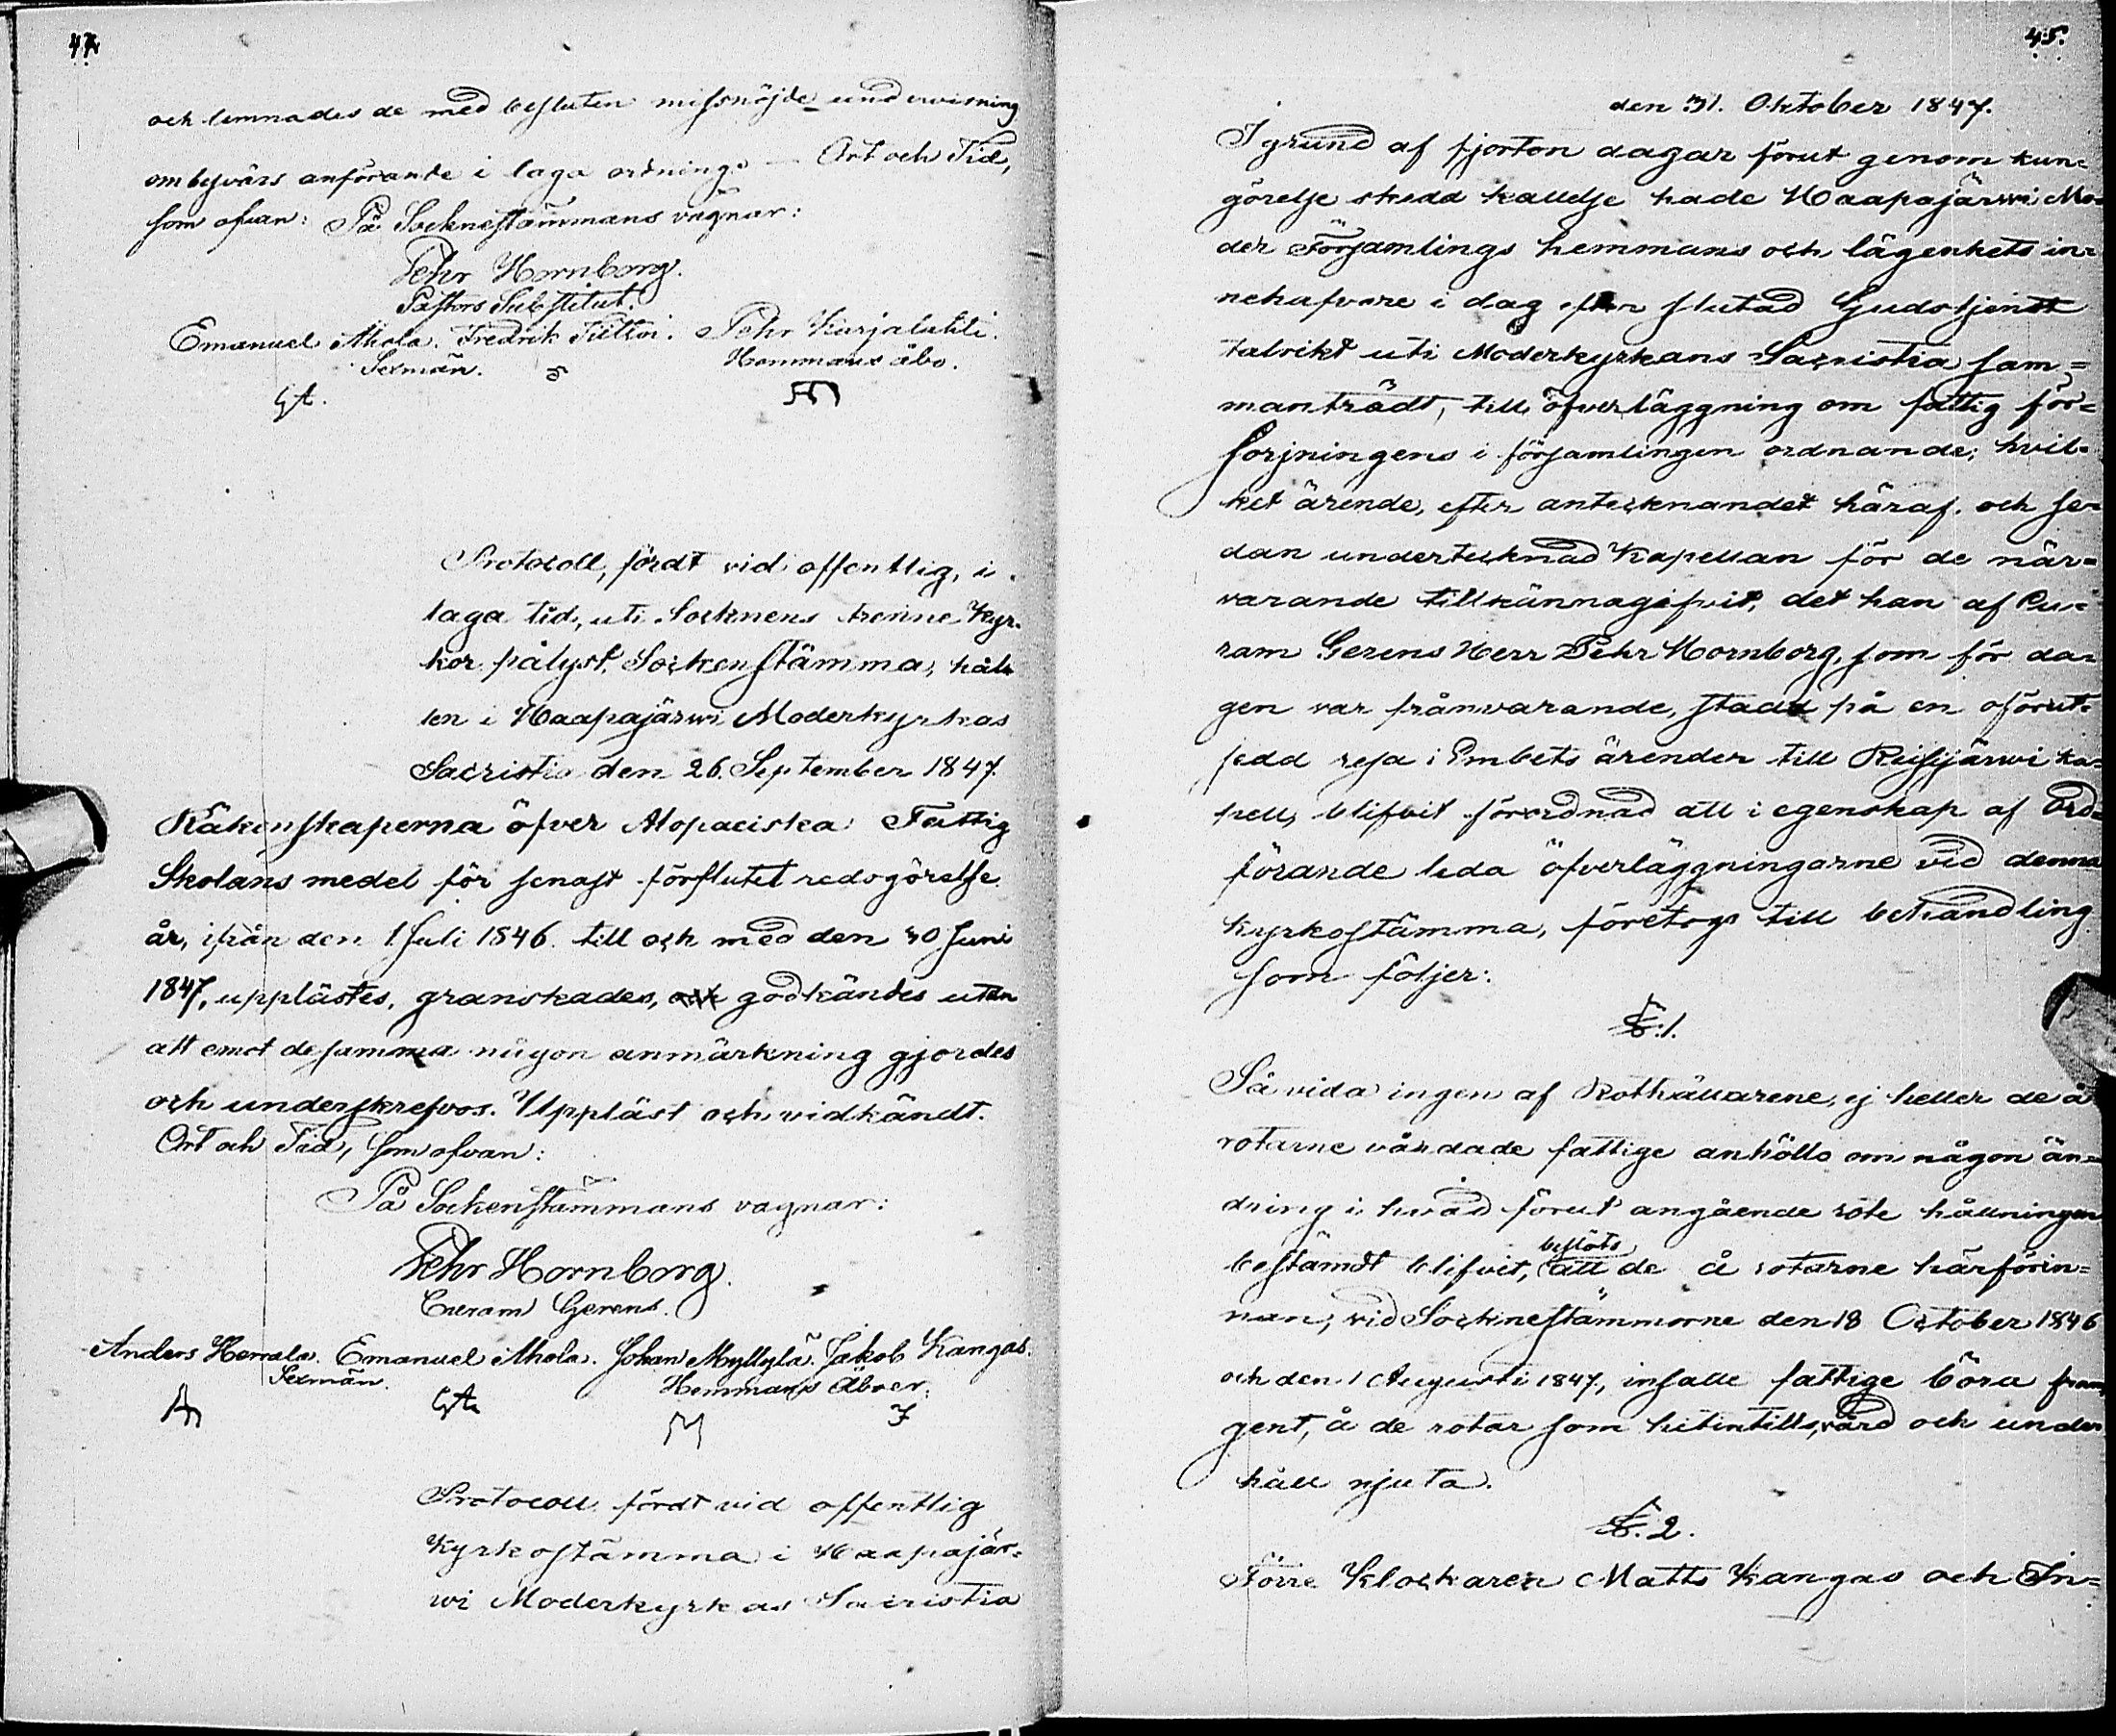 44.
och lemnades de med besluten missnöjde underwisning
om besvärs anförande i laga ordning. — Ort och Tid,
som ofvan: På Socknestämmans vägnar:
Pehr Hornborg.
Pastors Substitut.
Emanuel Ahola. Fredrik Tuttoi. Pehr Karjalahti.
Sexmän. Hemmans åbo.
Protocoll, fördt vid offentlig, i
laga tid, uti Socknens trenne Kyr-
kor pålyst, Sockenstämma, hål-
len i Haapajärwi Moderkyrkas
Sacristia den 26. September 1847.
Räkenskaperna öfver Alopaeiska Fattig
Skolans medel för senast förflutet redogörelse
år, ifrån den 1 Juli 1846. till och med den 30 Juni
1847, upplästes, granskades, och godkändes utan
att emot desamma någon anmärkning gjordes
och underskrefvos. Uppläst och vidkändt.
Ort och Tid, som ofvan:
På Sockenstämmans vägnar:
Pehr Hornborg.
Curam Gerens.
Anders Herrala. Emanuel Ahola. Johan Myllylä. Jakob Kangas.
Sexmän. Hemmans Åboer.
Protocoll fördt vid offentlig
Kyrkostämma i Haapajär-
wi Moderkyrkas Sacristia
45.
den 31. Oktober 1847.
I grund af fjorton dagar förut genom kun-
görelse skedd kallelse hade Haapajärwi Mo-
der Församlings hemmans och lägenhets in-
nehafvare i dag efter slutad Gudstjenst
talrikt uti Moderkyrkans Sacristia sam-
manträdt, till öfverläggning om fattig för-
sörjningens i församlingen ordnande; hvil-
ket ärende, efter antecknandet häraf. och se-
dan undertecknad Kapellan för de när-
varande tillkännagifvit, det han af Cu-
ram Gerens Herr Pehr Hornborg, som för da-
gen var frånvarande, stadd på en oförut-
sedd resa i Embets ärender till Reisjärwi ka-
pell, blifvit förordnad att i egenskap af Ord-
förande leda öfverläggningarne vid denna
kyrkostämma, företogs till behandling
som följer:
§. 1.
Så vida ingen af Rothållarene, ej heller de å
rotarne vårdade fattige anhölls om någon än-
dring i hvad förut angående rote hållningen
beslöts
bestämdt blifvit, att de å rotarne härförin-
nan, vid Socknestämmorne den 18 October 1846
och den 1 Augusti 1847, insatte fattige böra fram
gent, å de rotar som hitintills, vård och under
håll njuta.
§. 2.
Förre Klockaren Matts Kangas och In-